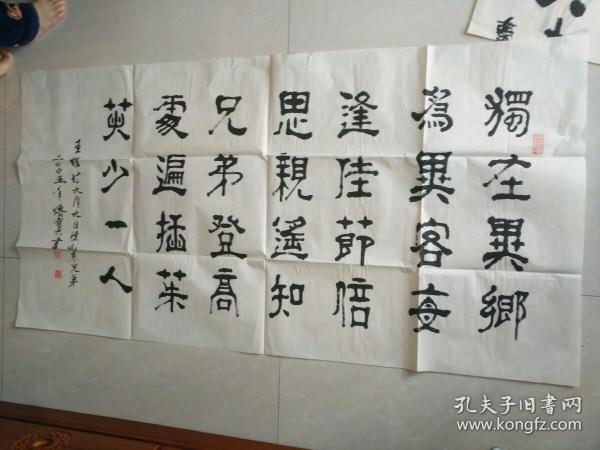 獨在異鄉
為異客每
逢佳節倍
思親遙知
兄弟登高
處遍插茱
萸少一人
王維詩九月九日憶山東兄弟
二〇〇五年
書
孔夫子旧书网
www.kongfz.com